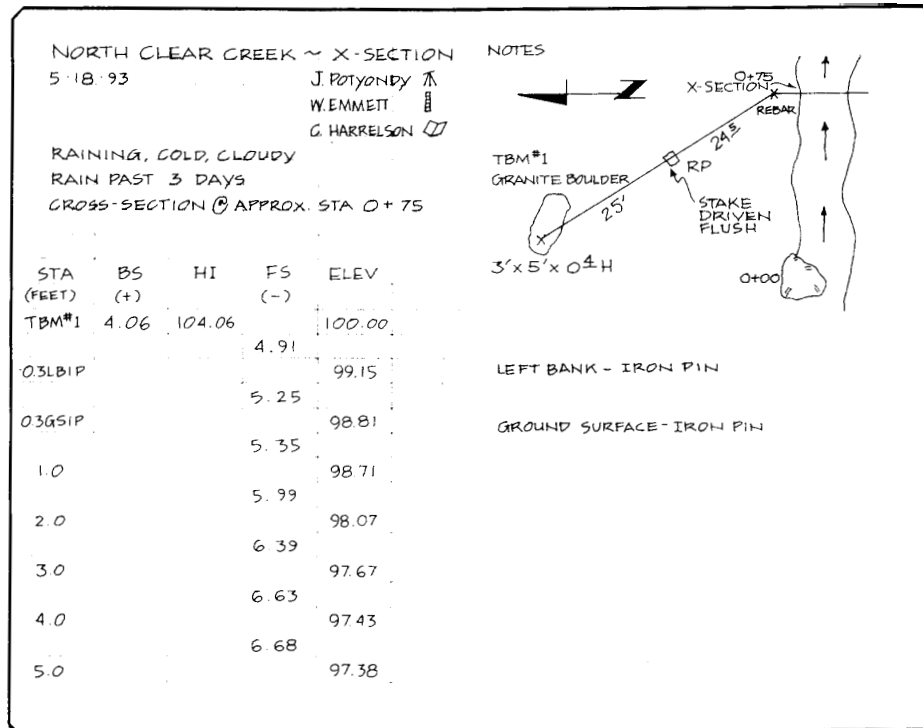 NORTH CLEAR CREEK ~ X-SECTION
5·18·93
J. POTYONDY
W. EMMETT
C. HARRELSON
RAINING, COLD, CLOUDY
RAIN PAST 3 DAYS
CROSS-SECTION @ APPROX. STA 0+75
STA BS HI FS ELEV
(FEET) (+) (-)
TBM#1 4.06 104.06 100.00
4.91
0.3LBIP 99.15
5.25
0.3GSIP 98.81
5.35
1.0 98.71
5.99
2.0 98.07
6.39
3.0 97.67
6.63
4.0 97.43
6.68
5.0 97.38
NOTES
Z
0+75
X-SECTION
REBAR
24.5
RP
TBM#1
GRANITE BOULDER
25'
STAKE
DRIVEN
FLUSH
3' x 5' x 0.4 H
0+00
LEFT BANK - IRON PIN
GROUND SURFACE - IRON PIN